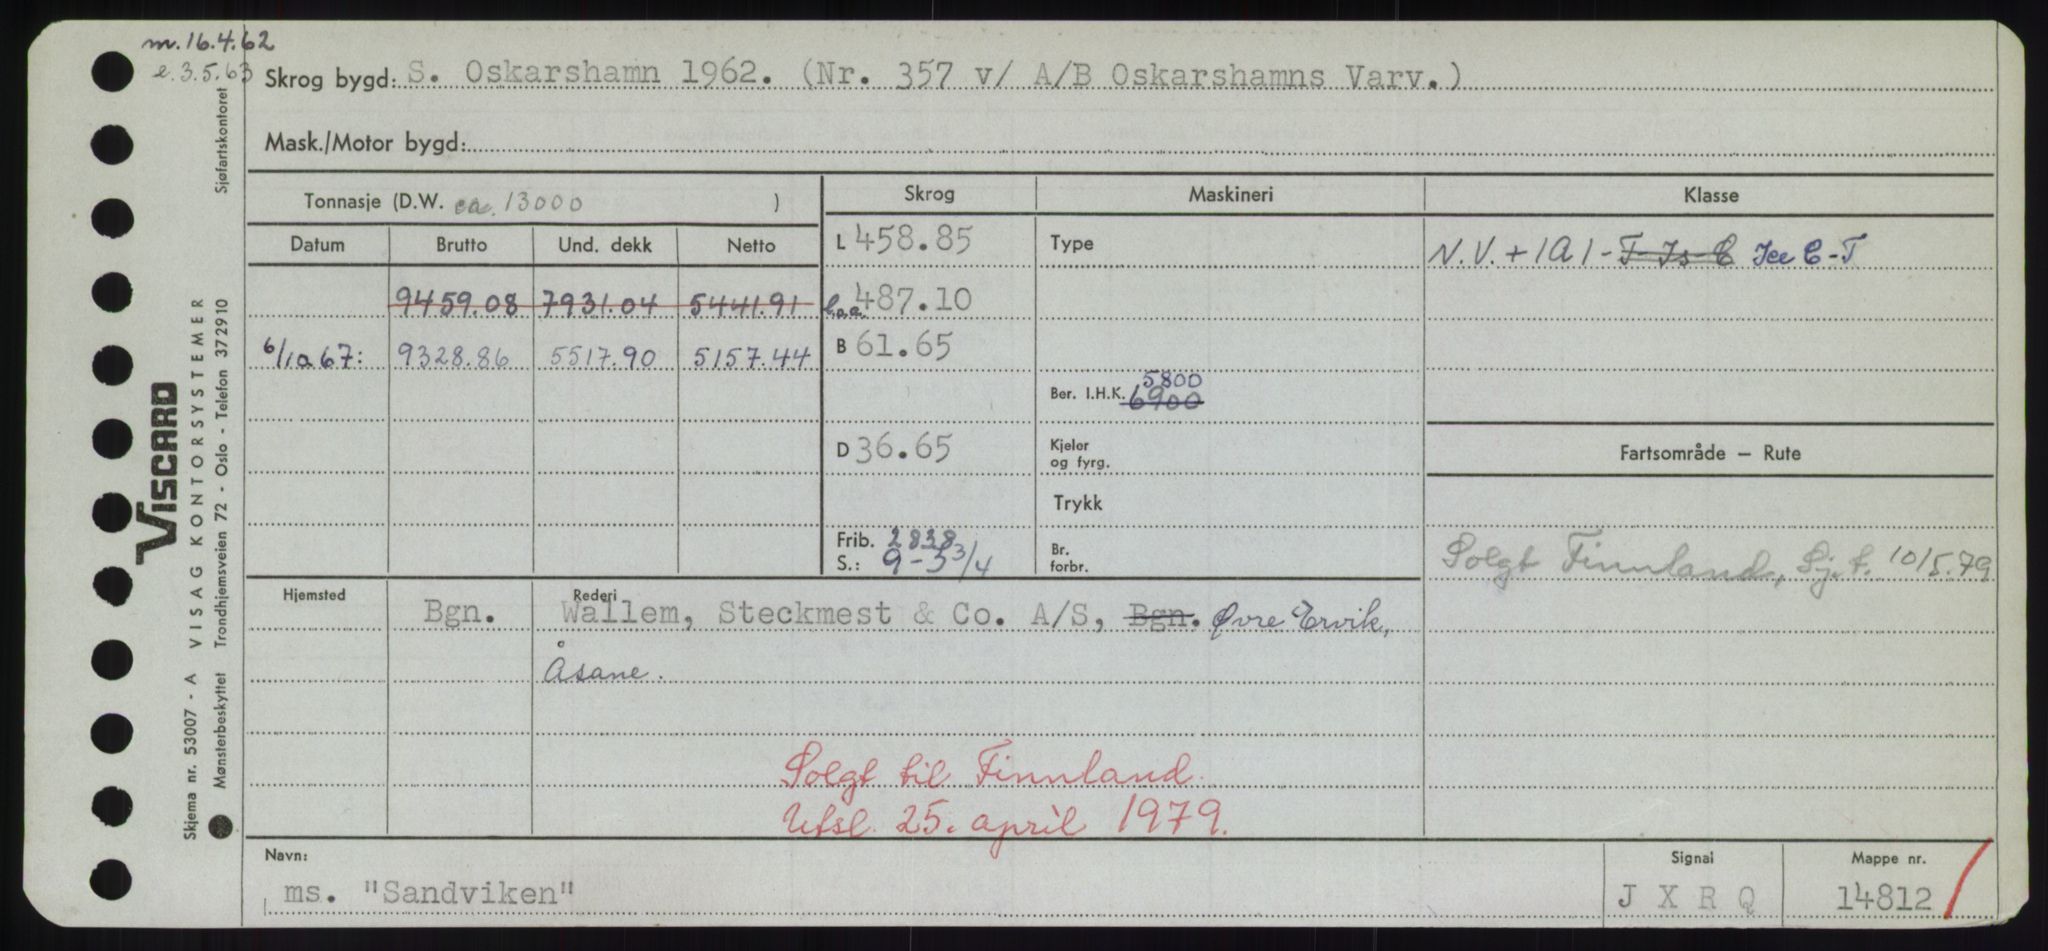 m. 16.4.62
e. 3.5.63
Skrog bygd: S. Oskarshamn 1962. (Nr. 357 v/ A/B Oskarshamns Varv.)
Mask./Motor bygd:
Tonnasje (D.W. ca. 13000 )
Skrog Maskineri Klasse
Datum Brutto Und. dekk Netto
L 458.85 Type N.V. + 1A1 - T-Is-C Ice C-T
9459.08 7931.04 5441.91 L.o.a. 487.10
6/10 67: 9328.86 5517.90 5157.44 B 61.65
5800
Ber. I.H.K. 6900
D 36.65 Kjeler og fyrg. Fartsområde — Rute
Trykk
Frib. 2838
S.: 9-3 3/4 Br. forbr. Solgt Finnland, Sj.f. 10/5.79
Hjemsted Rederi
Bgn. Wallem, Steckmest & Co. A/S, Bgn. Øvre Ervik,
Åsane.
Solgt til Finnland.
Utsl. 25. april 1979.
Navn: Signal Mappe nr.
ms. "Sandviken" J X R Q 14812
Skjema nr. 53007 - A VISAG KONTORSYSTEMER Sjøfartskontoret
Mønsterbeskyttet Trondhjemsveien 72 - Oslo - Telefon 372910
VISCARD